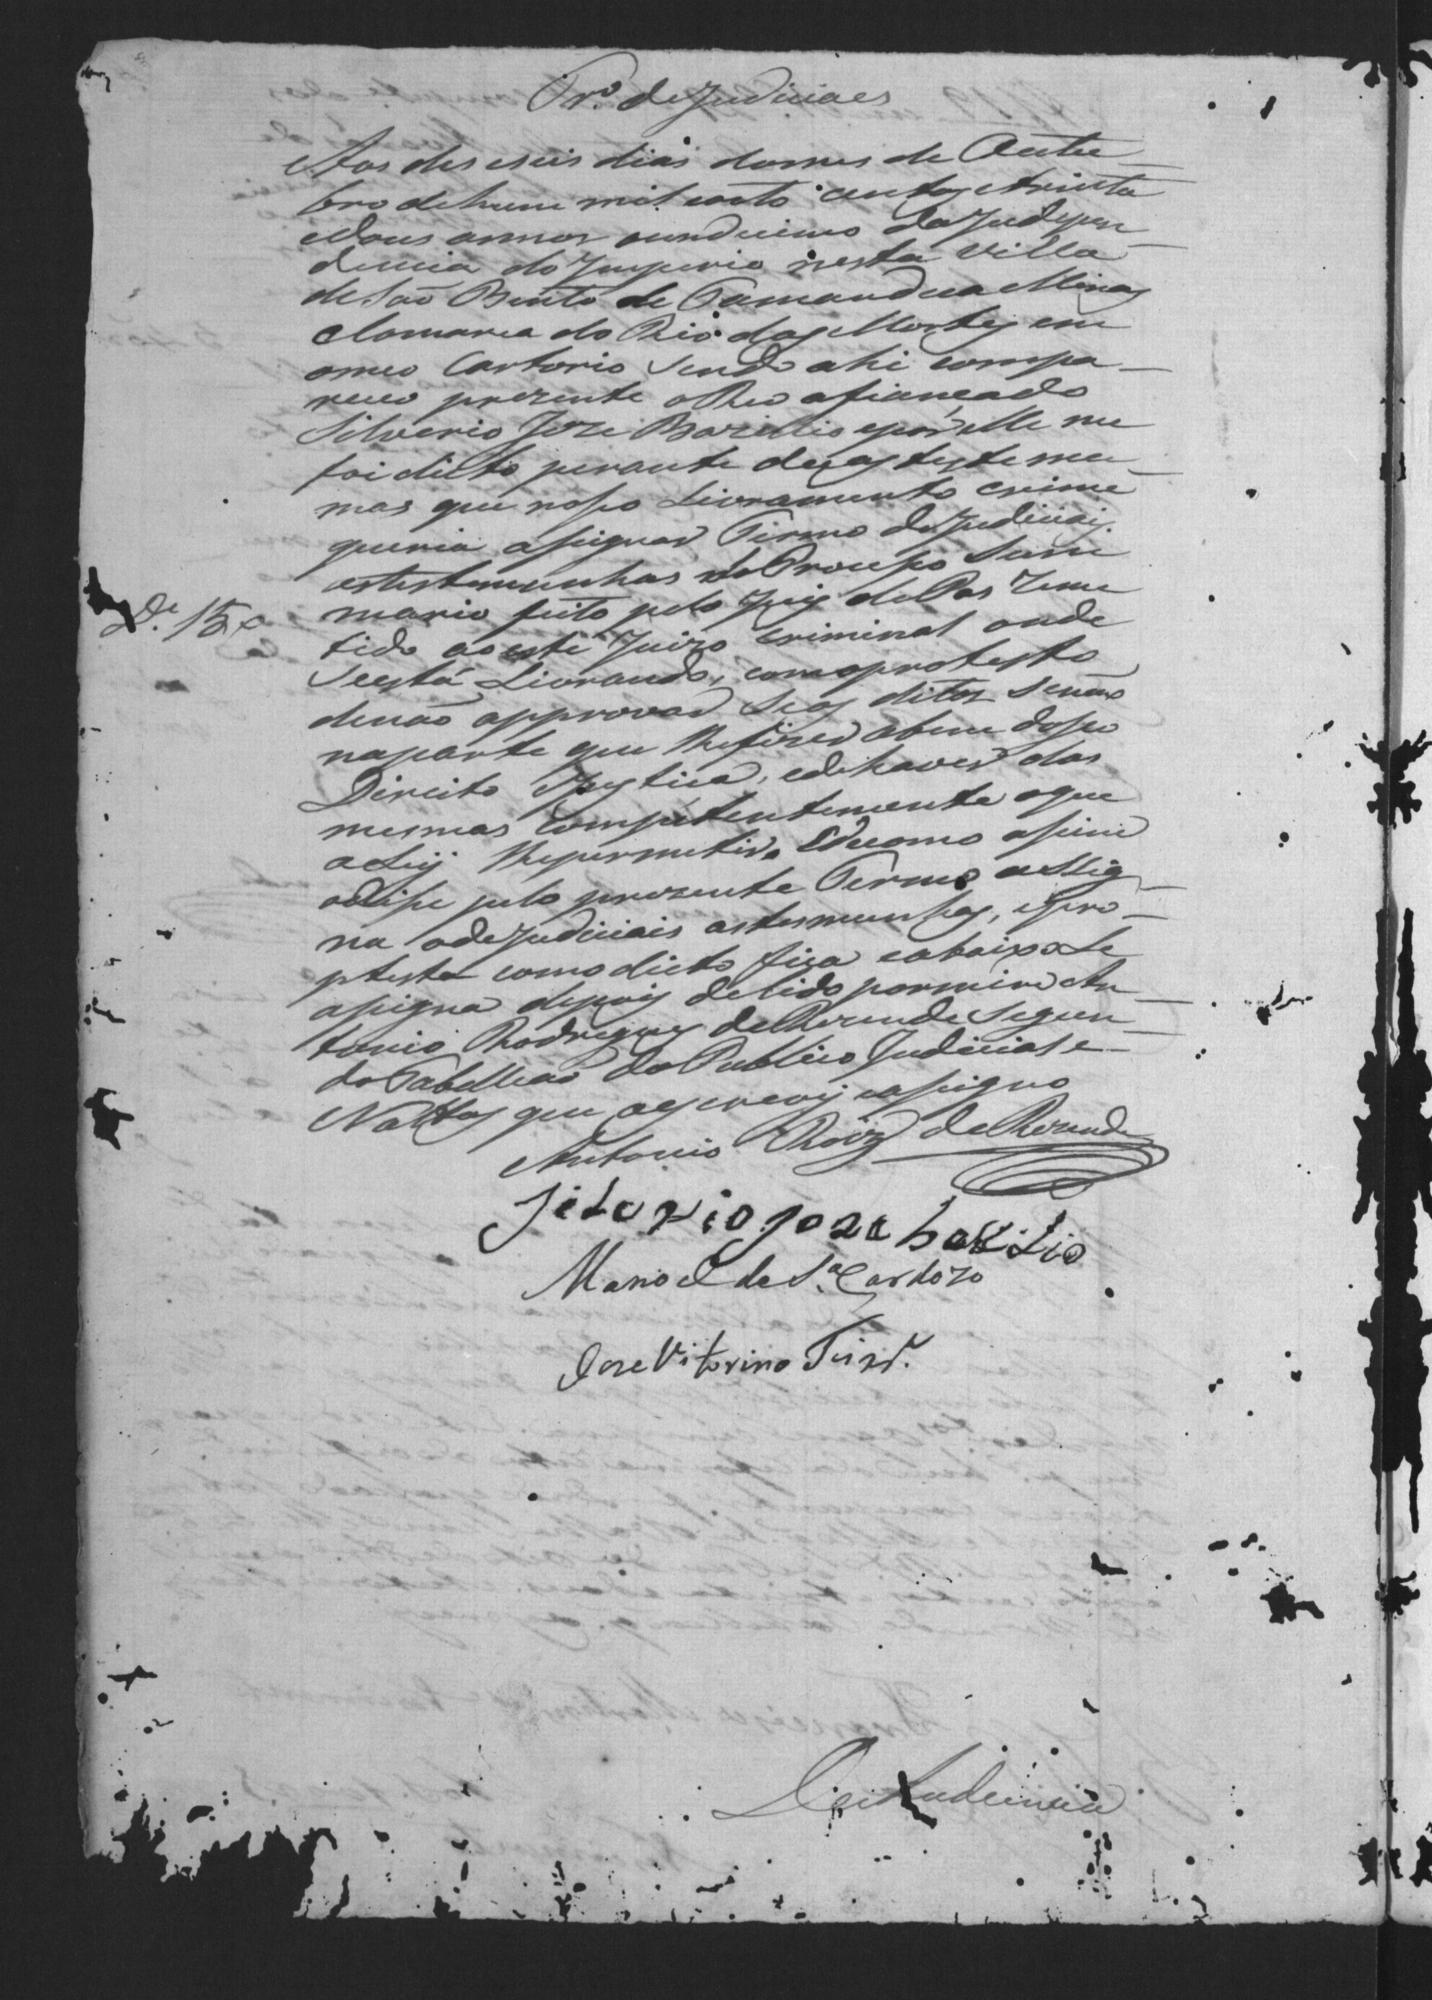 Tr.º de Judiciaes
Aos deseseis dias domes de Outu-
bro dehum mil oito centos etrinta
edous annos undecimo da Indepen-
dencia do Imperio nesta Villa
de São Bento de Tamandua Minas
Comarca do Rio das Mortes em
omeo Cartorio sendo ahi compa-
receo prezente o Reo afiancado
Silverio Joze Bazilio e por elle me
foi dicto perante de as testemu-
mas que noseo Livramento crime
queria asignar Termo de Judiciais
astestemunhas do Proceso Sum
mario feito pelo Juis de Pas Reme
tido aoeste Juizo Criminal onde
seestá Livrando, comoprotesto
denão approvar seos ditos senão
naparte que lhefizer abem doseo
Direito eJustica, edehaver das
mesmas competentemente oque
aLey lhepermetir. Edecomo asim
odise pelo prezente Termo asig-
na odeJudiciais astesmunhas, epro-
ptesta como dicto fica eabaixo se
asigna depois delido pormim An-
tonio Rodrigues deRezende Segun-
do Tabelliao do Publico Judicial e
Nottas que oescrevy easigno
Antonio Roiz de Rezende
D.e 15
Silverio joze bazilio
Manoel da S.ª Cardozo
Joze Vitorino Teixr.ª
De Audiencia